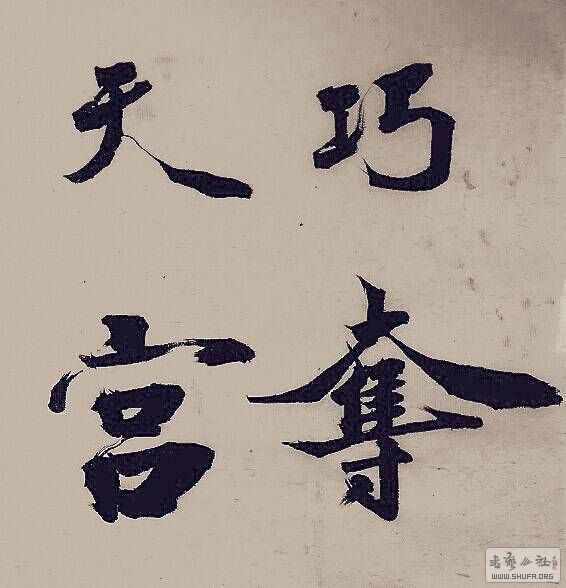 巧奪
天宫
书艺公社
WWW.SHUFA.ORG